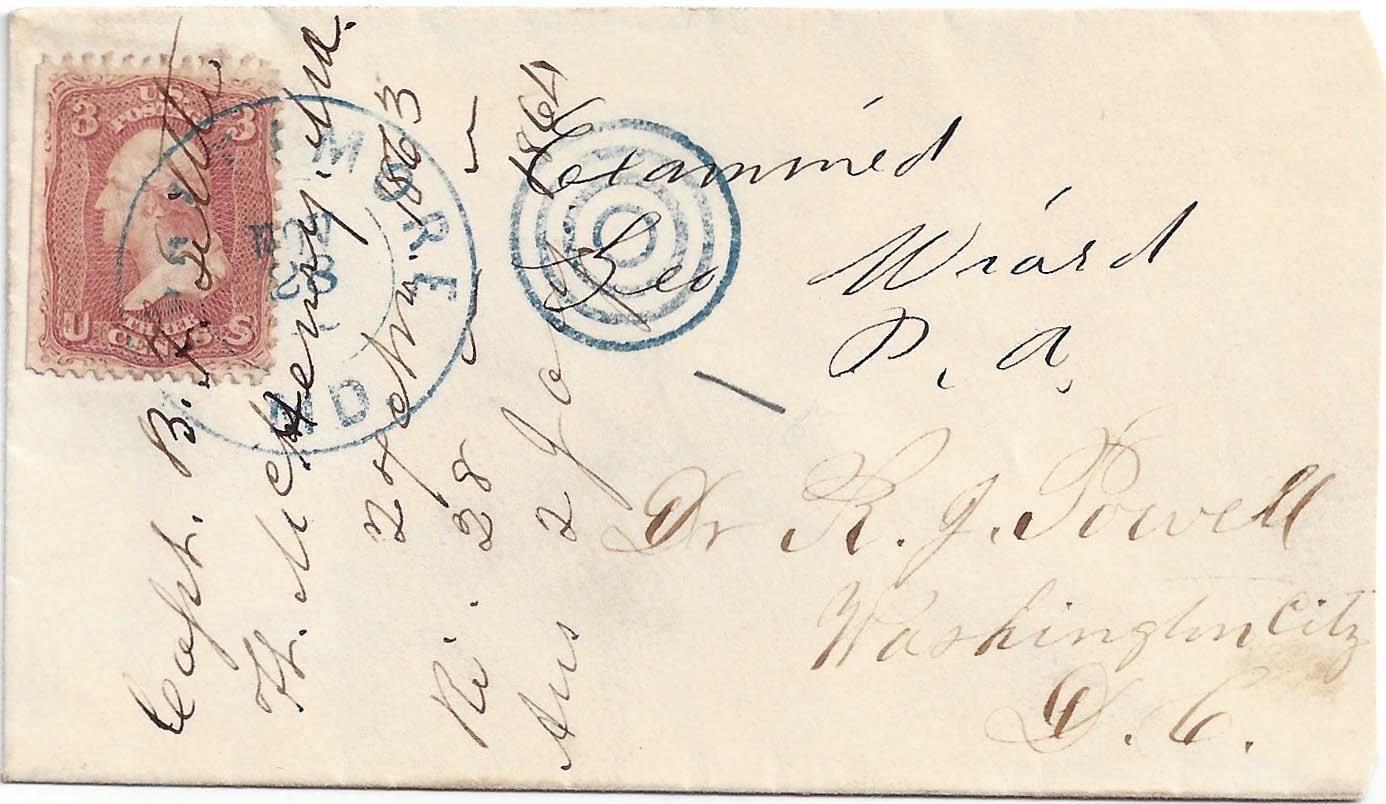 3 U.S. POSTAGE 3
U THREE CENTS S
BALTIMORE
MD
Examined
Geo Wiard
P. A.
Dr R. J. Powell
Washington City
D. C.
Capt. B.
Ft. McHenry. Md.
22 of Nov. 1863
Re. 28 " "
Ans 2 Jany 1864